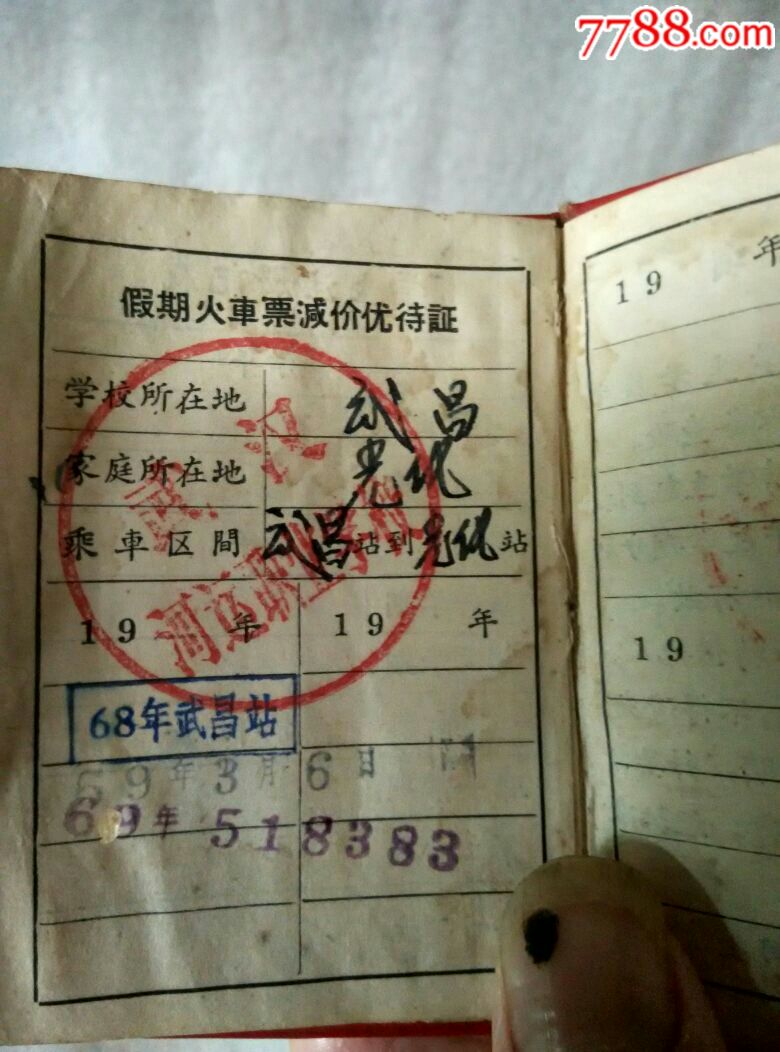 7788.com
假期火車票减价优待証
学校所在地 武昌
家庭所在地 光化
乘車区間 武昌站到光化站
武汉
河运职业学校
19 年 19 年
68年武昌站
69年3月6日
69年 518383
19 年
19